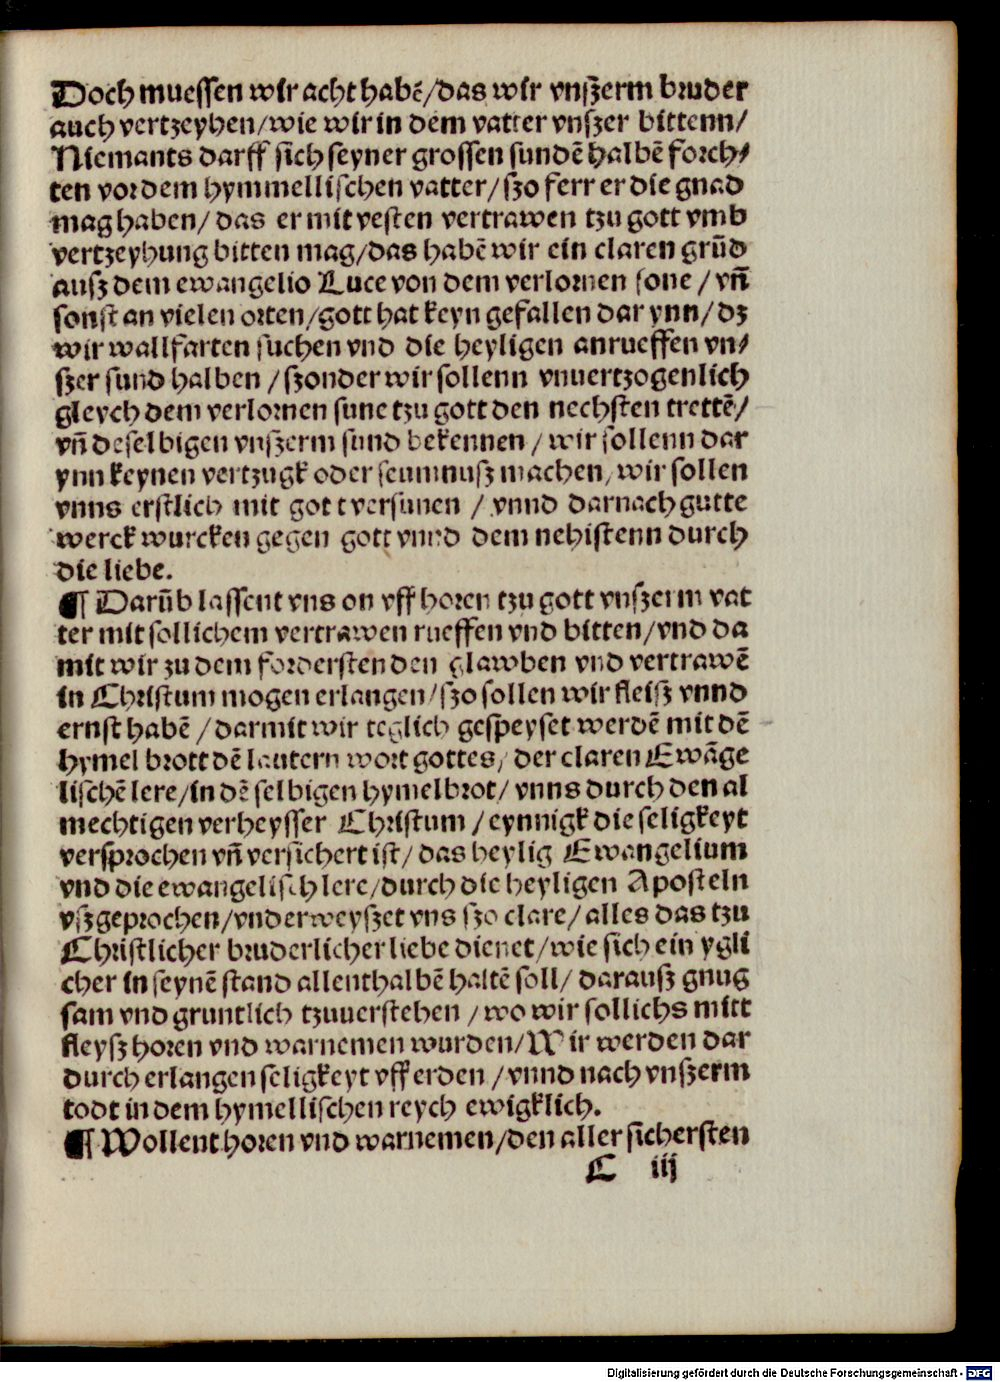 Doch muessen wir acht habē/das wir vnſzerm bruder
auch vertzeyhen/wie wir in dem vatter vnſzer bittenn/
Niemants darff ſich ſeyner groſſen ſundē halbē forch⸗
ten vor dem hymmelliſchen vatter/ſzo ferr er die gnad
mag haben/ das er mit veſten vertrawen tzu gott vmb
vertzeyhung bitten mag/das habē wir ein claren grūd
auſz dem ewangelio Luce von dem verlornen ſone / vñ
ſonſt an vielen orten/gott hat keyn gefallen dar ynn/ dz
wir wallfarten ſuchen vnd die heyligen anrueffen vn⸗
ſzer ſund halben /ſzonder wir ſollenn vnuertzogenlich
gleych dem verlornen ſune tzu gott den nechſten trettē/
vñ deſelbigen vnſzerm ſund bekennen / wir ſollenn dar
ynn keynen vertzugk oder ſeumnuſz machen/wir ſollen
vnns erſtlich mit gott verſunen / vnnd darnach gutte
werck wurcken gegen gott vnnd dem nehiſtenn durch
die liebe.
¶ Darūb laſſent vns on vff horen tzu gott vnſzerm vat
ter mit ſollichem vertrawen rueffen vnd bitten/vnd da
mit wir zu dem forderſten den glawben vnd vertrawē
in Chriſtum mogen erlangen/ſzo ſollen wir fleiſz vnnd
ernſt habē /darmit wir teglich geſpeyſet werdē mit dē
hymel brott dē lautern wort gottes/ der claren Ewāge
liſchē lere/in dē ſelbigen hymelbrot/ vnns durch den al
mechtigen verheyſſer Chriſtum /eynnigk die ſeligkeyt
verſprochen vñ verſichert iſt/ das heylig Ewangelium
vnd die ewangeliſch lere/durch die heyligen Apoſteln
vſzgeprochen/vnderweyſzet vns ſzo clare/ alles das tzu
Chriſtlicher bruderlicher liebe dienet/wie ſich ein ygli
cher in ſeynē ſtand allenthalbē haltē ſoll/ darauſz gnug
ſam vnd gruntlich tzuuerſtehen /wo wir ſollichs mitt
fleyſz horen vnd warnemen wurden/Wir werden dar
durch erlangen ſeligkeyt vff erden /vnnd nach vnſzerm
todt in dem hymelliſchen reych ewigklich.
¶ Wollent horen vnd warnemen/den aller ſicherſten
C iij
Digitalisierung gefördert durch die Deutsche Forschungsgemeinschaft - DFG